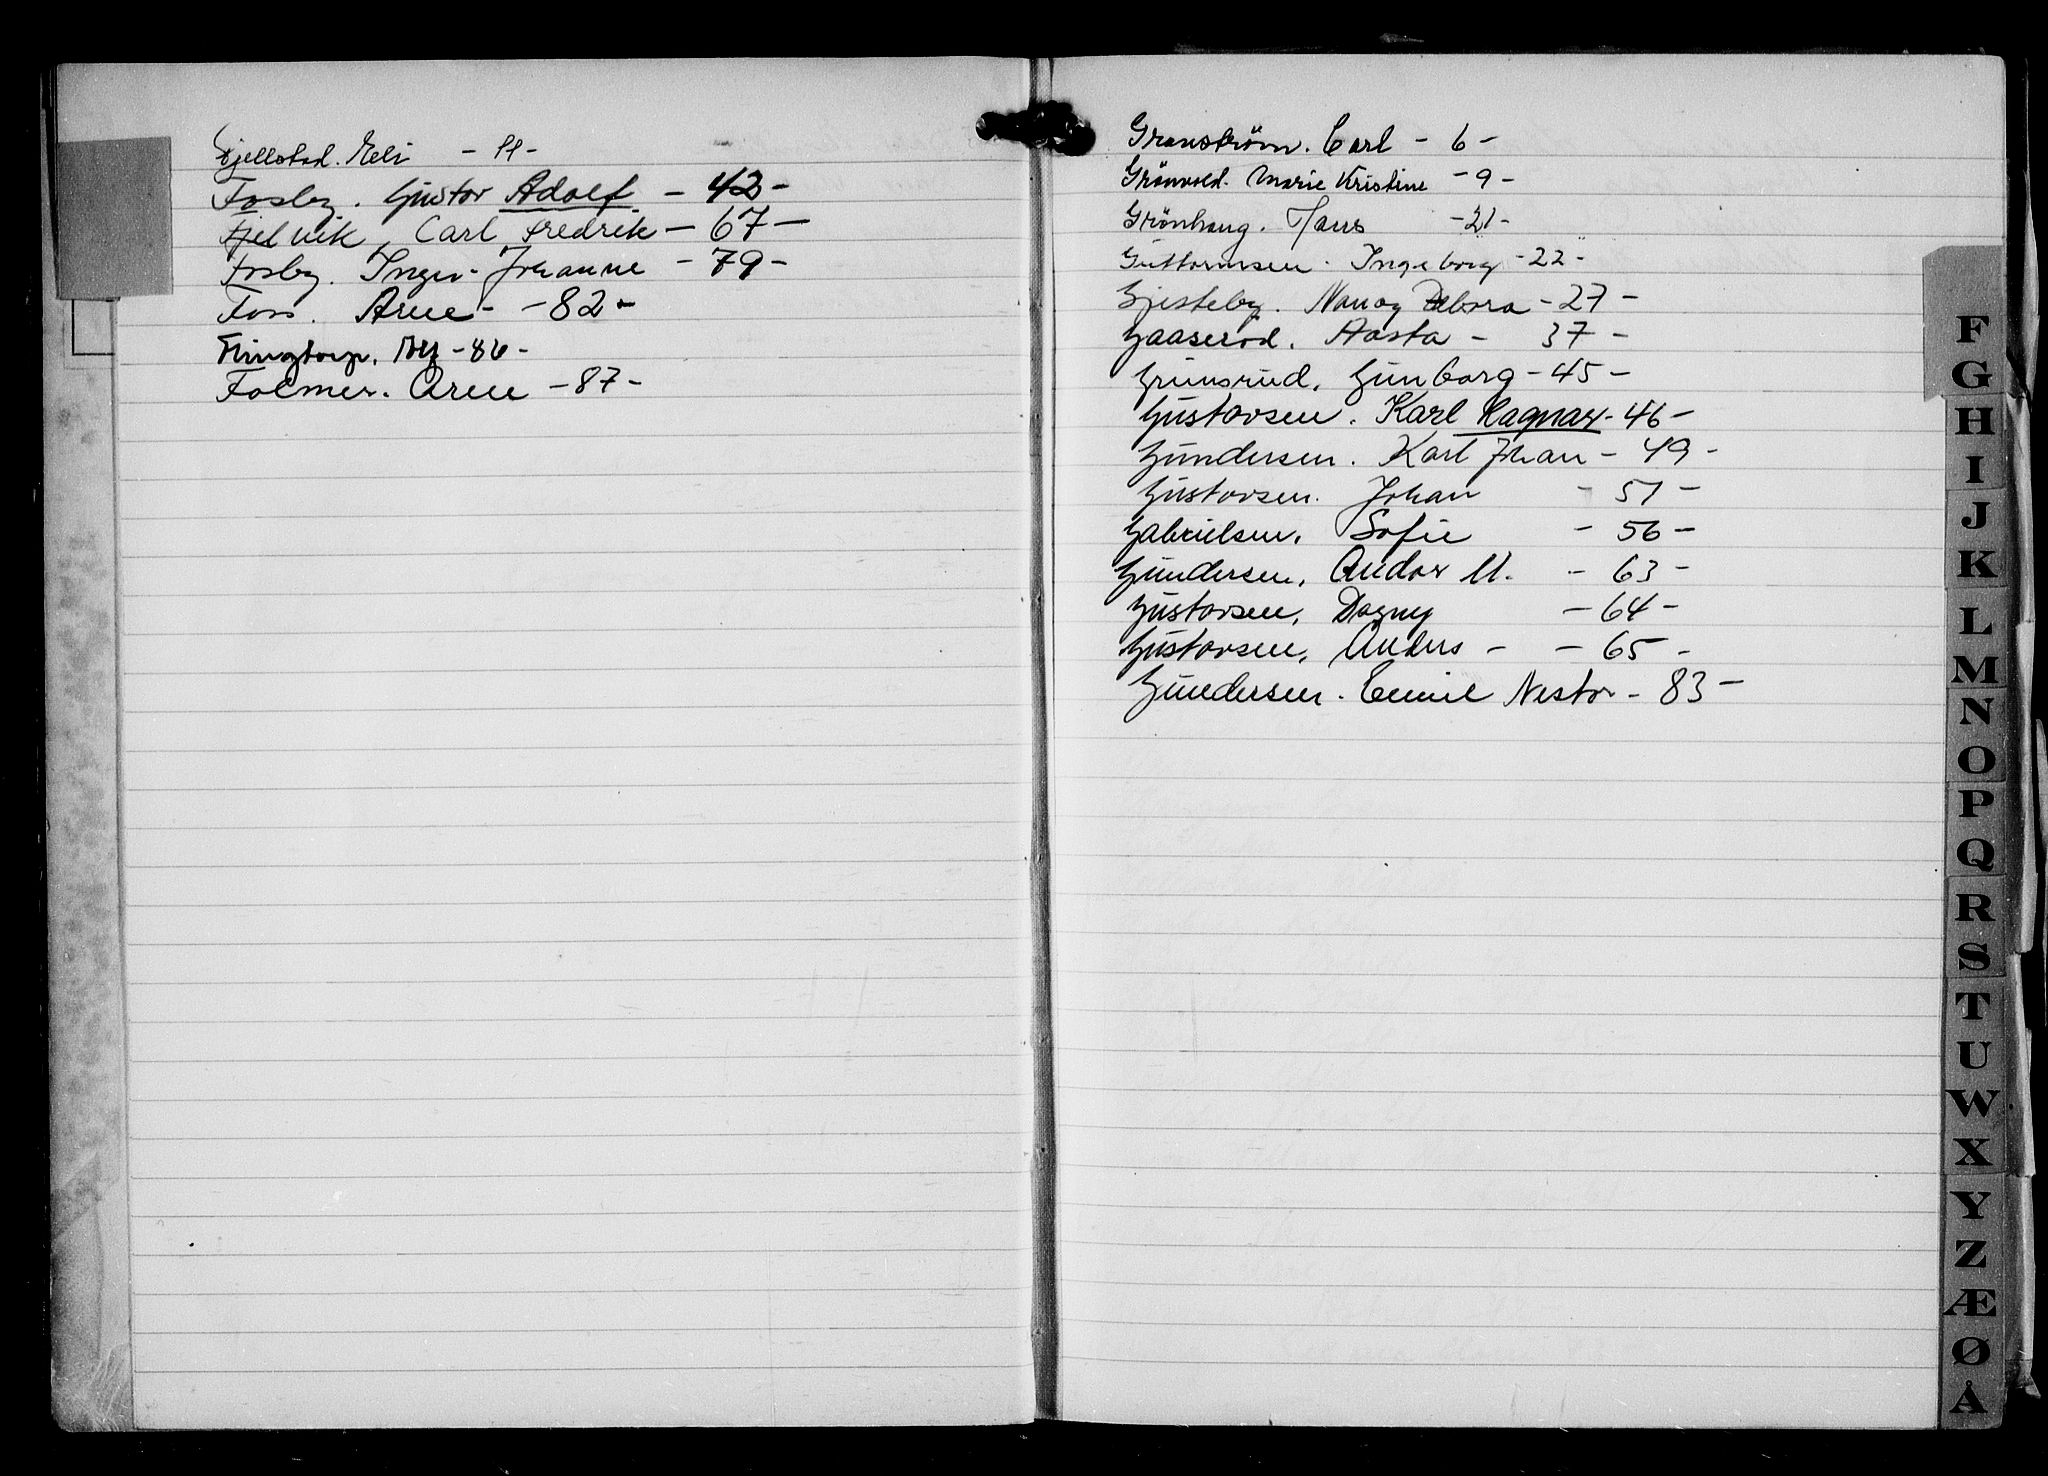 Fjellstad. Eli - 11 -
Fosby. Gustav Adolf - 42 -
Fjelvik, Carl Fredrik - 67 -
Fosby. Inger-Johanne - 79 -
Foss. Arne - - 82 -
- 86 -
Folmer. Arne - 87 -
Granström. Carl - 6 -
Grönvold. Marie Kristine - 9 -
Grönhaug. Hans - 21 -
Guttormsen. Ingeborg - 22 -
Gjesteby. Nanny Debora - 27 -
Gaaseröd. Aasta - 37 -
Grunsrud, Gunborg - 45 -
Gustavsen. Karl Ragnar - 46 -
Gundersen. Karl Johan - 49 -
Gustavsen. Johan - 51 -
Gabrielsen, Sofie - 56 -
Gundersen, Andor M. - 63 -
Gustavsen, Dagny - 64 -
Gustavsen, Anders - - 65 -
Gundersen. Emil Nestor - 83 -
F
G
H
I
J
K
L
M
N
O
P
Q
R
S
T
U
W
X
Y
Z
Æ
Ø
Å